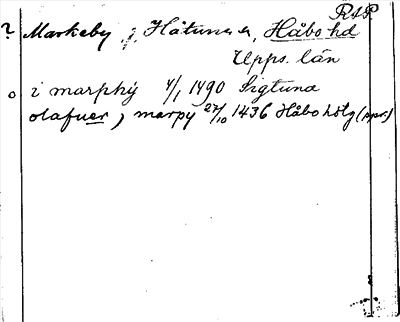 RAP
? Markeby, g. Håtuna s, Håbo hd
Upps. län
o i marphÿ 4/1 1490 Sigtuna
olafuer, marpy 27/10 1436 Håbo hdg (ppr.)